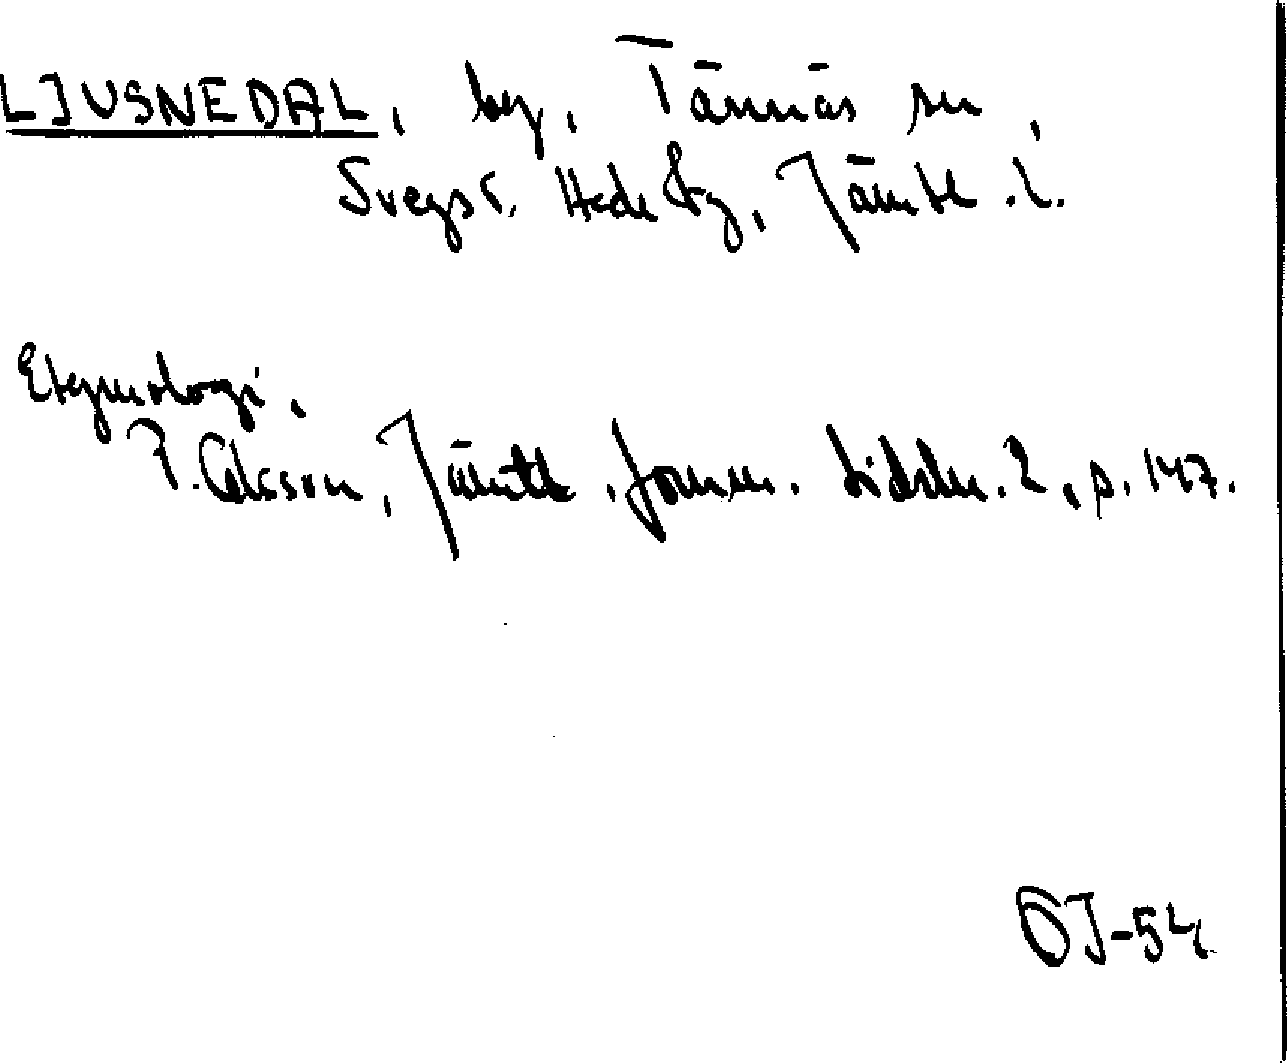 LJUSNEDAL, by, Tännäs sn,
Svegs t. Hede tg, Jämtl. l.
Etymologi.
P. Olsson, Jämtl. fornm. tidskr. 2, p. 147.
ÖJ-54